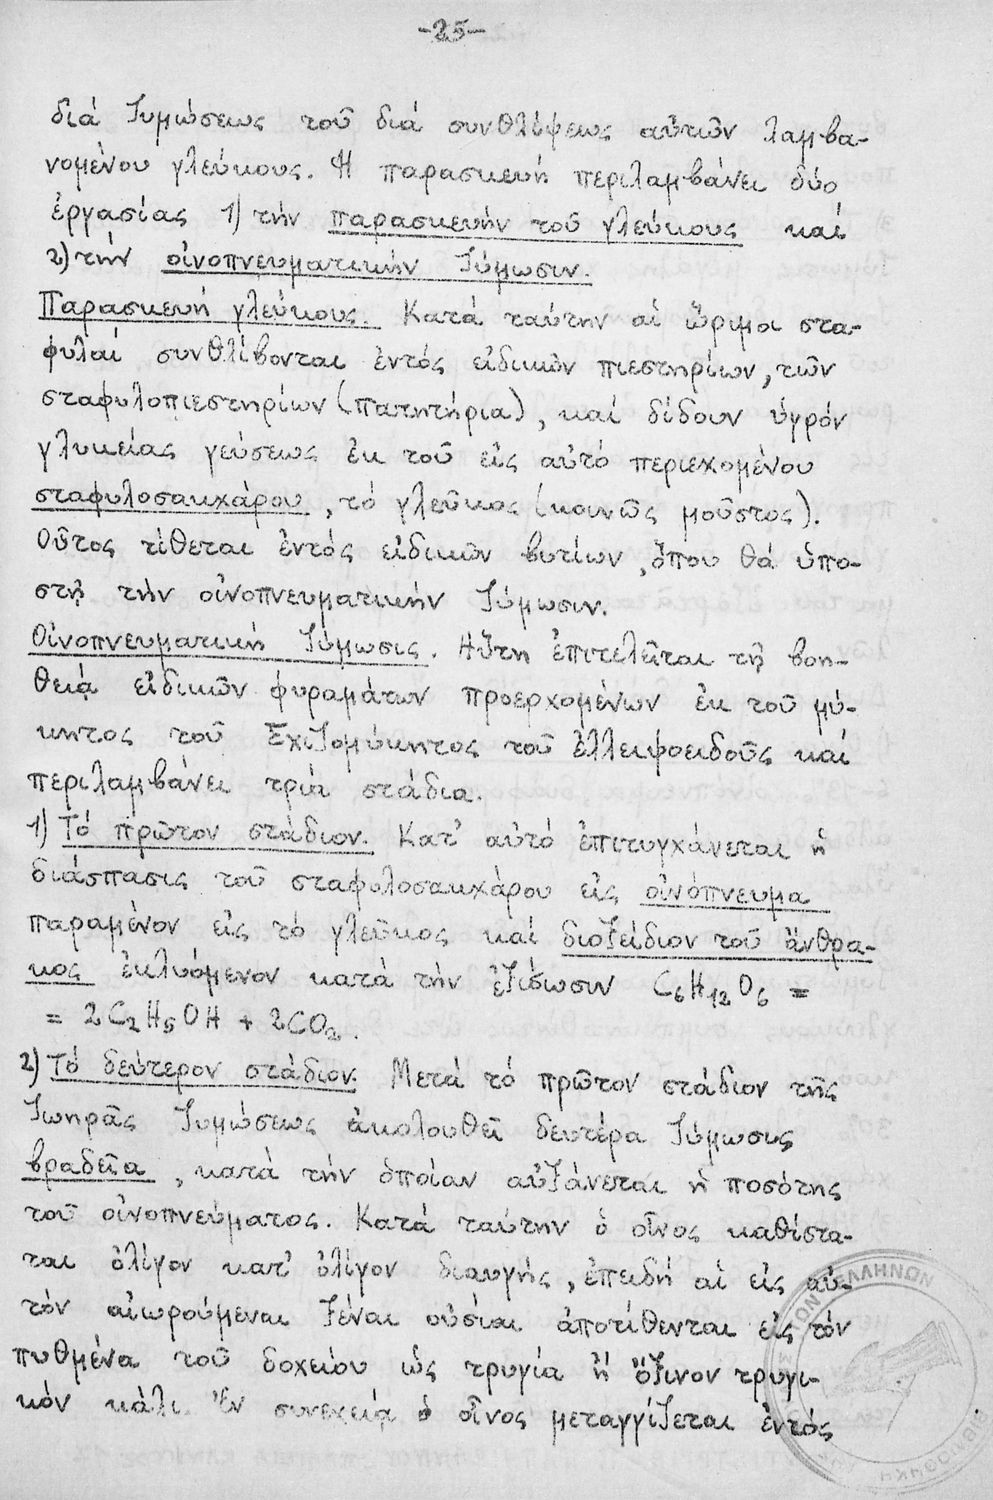 -25-
διά ζυμώσεως τοῦ διά συνθλίψεως αὐτῶν λαμβα-
νομένου γλεύκους. Ἡ παρασκευή περιλαμβάνει δύο
ἐργασίας 1) τήν παρασκευήν τοῦ γλεύκους καί
2) τήν οἰνοπνευματικήν ζύμωσιν.
Παρασκευή γλεύκους. Κατά ταύτην αἱ ὥριμοι στα-
φυλαί συνθλίβονται ἐντός εἰδικῶν πιεστηρίων, τῶν
σταφυλοπιεστηρίων (πατητήρια), καί δίδουν ὑγρόν
γλυκείας γεύσεως ἐκ τοῦ εἰς αὐτό περιεχομένου
σταφυλοσακχάρου, τό γλεῦκος (κοινῶς μοῦστος).
Οὗτος τίθεται ἐντός εἰδικῶν βυτίων, ὅπου θά ὑπο-
στῇ τήν οἰνοπνευματικήν ζύμωσιν.
Οἰνοπνευματική ζύμωσις. Αὕτη ἐπιτελεῖται τῇ βοη-
θείᾳ εἰδικῶν φυραμάτων προερχομένων ἐκ τοῦ μύ-
κητος τοῦ Σχιζομύκητος τοῦ ἐλλειψοειδοῦς καί
περιλαμβάνει τρία στάδια.
1) Τό πρῶτον στάδιον. Κατ' αὐτό ἐπιτυγχάνεται ἡ
διάσπασις τοῦ σταφυλοσακχάρου εἰς οἰνόπνευμα
παραμένον εἰς τό γλεῦκος καί διοξείδιον τοῦ ἄνθρα-
κος ἐκλυόμενον κατά τήν ἐξίσωσιν C₆H₁₂O₆ =
= 2C₂H₅OH + 2CO₂.
2) Τό δεύτερον στάδιον. Μετά τό πρῶτον στάδιον τῆς
ζωηρᾶς ζυμώσεως ἀκολουθεῖ δευτέρα ζύμωσις
βραδεῖα, κατά τήν ὁποίαν αὐξάνεται ἡ ποσότης
τοῦ οἰνοπνεύματος. Κατά ταύτην ὁ οἶνος καθίστα-
ται ὀλίγον κατ' ὀλίγον διαυγής, ἐπειδή αἱ εἰς αὐ-
τόν αἰωρούμεναι ξέναι οὐσίαι ἀποτίθενται εἰς τόν
πυθμένα τοῦ δοχείου ὡς τρυγία ἤ ὄξινον τρυγι-
κόν κάλι. Ἐν συνεχείᾳ ὁ οἶνος μεταγγίζεται ἐντός
ΕΛΛΗΝΩΝ
ΒΙΒΛΙΟΘΗΚΗ